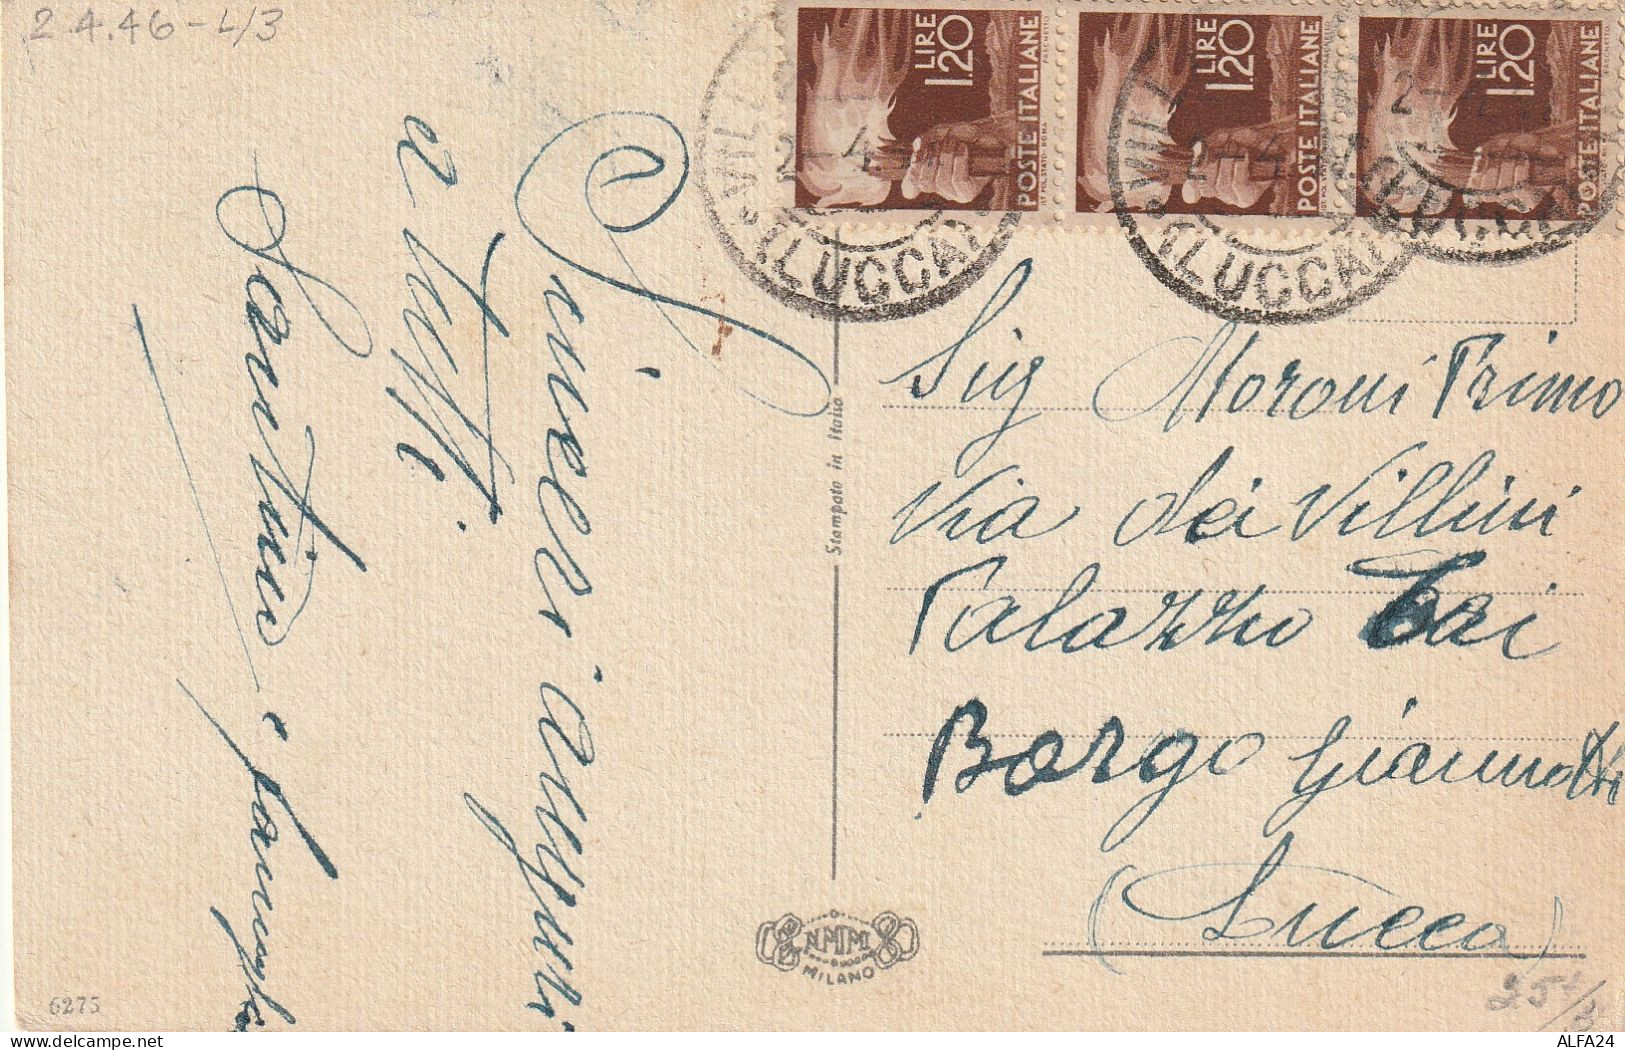 2.4.46 - L/3
LIRE 1.20
POSTE ITALIANE
LIRE 1.20
POSTE ITALIANE
LIRE 1.20
POSTE ITALIANE
(LUCCA)
(LUCCA)
Sinceri auguri
a tutti
Santino e famiglia
Stampato in Italia
Sig Moroni Primo
Via dei Villini
Palazzo
Borgo Giannotti
(Lucca)
N.M.M.
MILANO
6275
ALFA24